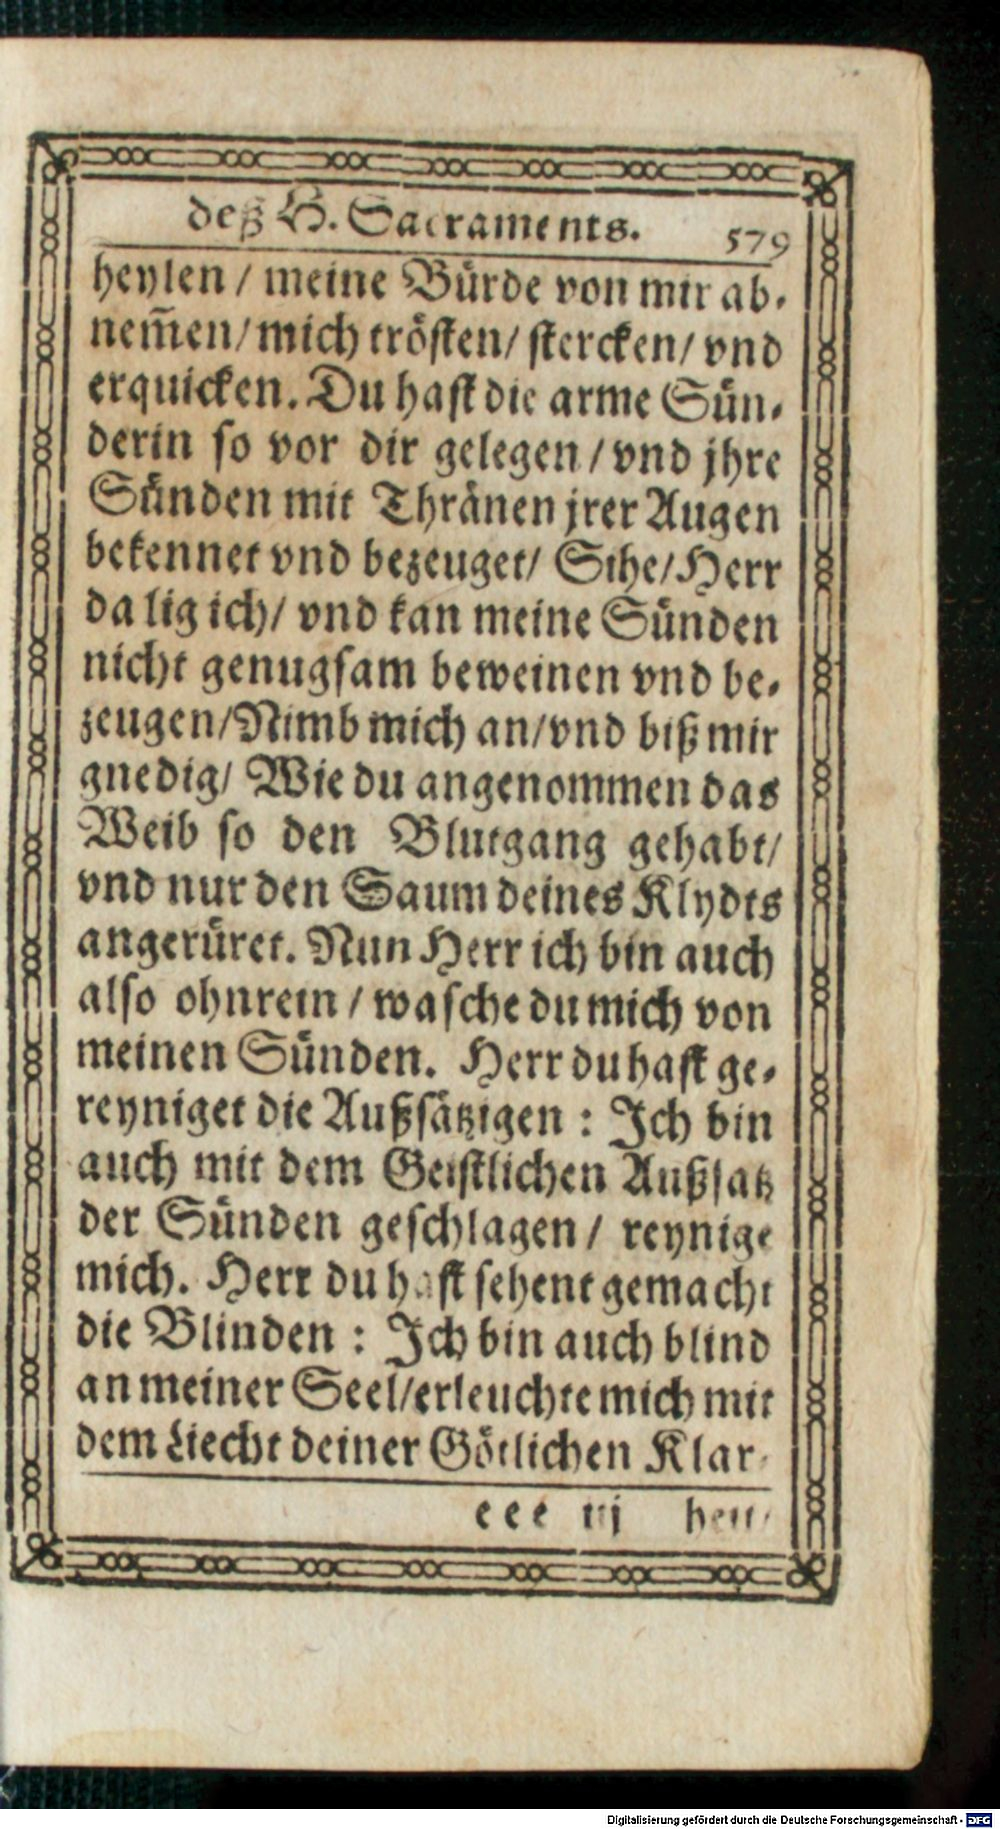 deß H. Sacraments. 579
heylen / meine Bürde von mir ab-
nem̃en / mich trösten / stercken / vnd
erquicken. Du hast die arme Sün-
derin so vor dir gelegen / vnd jhre
Sünden mit Thränen jrer Augen
bekennet vnd bezeuget / Sihe / Herr
da lig ich / vnd kan meine Sünden
nicht genugsam beweinen vnd be-
zeugen / Nimb mich an / vnd biß mir
gnedig / Wie du angenommen das
Weib so den Blutgang gehabt /
vnd nur den Saum deines Klydts
angerüret. Nun Herr ich bin auch
also ohnrein / wasche du mich von
meinen Sünden. Herr du hast ge-
reyniget die Außsätzigen : Ich bin
auch mit dem Geistlichen Außsatz
der Sünden geschlagen / reynige
mich. Herr du hast sehent gemacht
die Blinden : Ich bin auch blind
an meiner Seel / erleuchte mich mit
dem Liecht deiner Götlichen Klar-
eee iij heit /
Digitalisierung gefördert durch die Deutsche Forschungsgemeinschaft - DFG